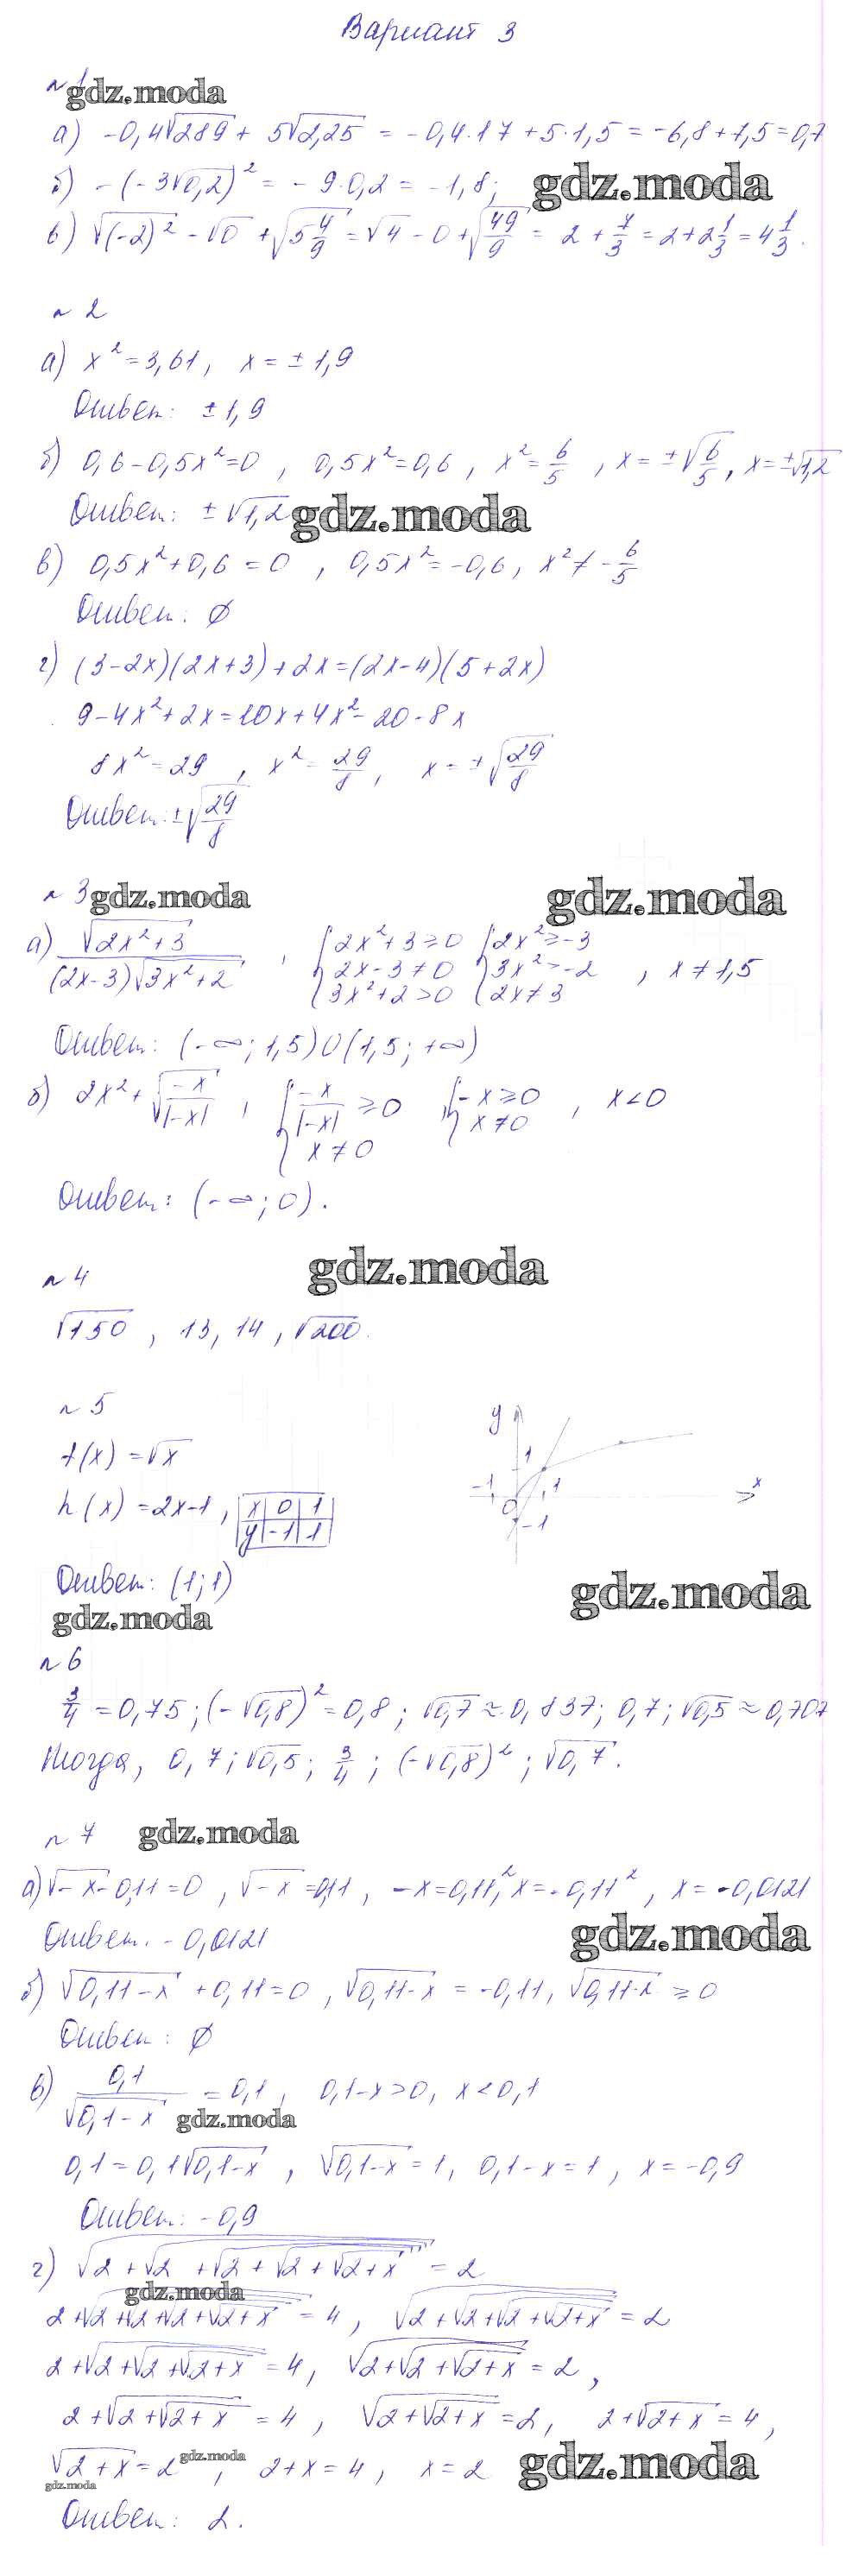 Вариант 3
№1
gdz.moda
а) -0,4√289 + 5√2,25 = -0,4·17 + 5·1,5 = -6,8+1,5=0,7
б) -(-3√0,2)² = -9·0,2 = -1,8;
gdz.moda
в) √(-2)² - √0 + √5 4/9 = √4 - 0 + √49/9 = 2 + 7/3 = 2+2 1/3 = 4 1/3.
№ 2
а) x² = 3,61, x = ± 1,9
Ответ: ± 1,9
б) 0,6-0,5x²=0, 0,5x²=0,6, x²= 6/5, x = ±√6/5, x=±√1,2
Ответ: ±√1,2
gdz.moda
в) 0,5x²+0,6 = 0, 0,5x²=-0,6, x² ≠ -6/5
Ответ: ∅
г) (3-2x)(2x+3)+2x=(2x-4)(5+2x)
9-4x²+2x=10x+4x²-20-8x
8x²=29, x²= 29/8, x= ±√29/8
Ответ: ±√29/8
№ 3
gdz.moda
gdz.moda
а) √2x²+3 / (2x-3)√3x²+2, { 2x²+3≥0 2x-3≠0 3x²+2>0 { 2x²≥-3 3x²>-2 2x≠3, x≠1,5
Ответ: (-∞; 1,5)∪(1,5; +∞)
б) 2x² + √-x/|-x|, { -x/|-x| ≥0 x≠0 { -x≥0 x≠0, x<0
Ответ: (-∞; 0).
gdz.moda
№ 4
√150, 13, 14, √200.
№ 5
f(x) = √x
h(x) = 2x-1, x 0 1
y -1 1
y
1
-1 0 1 x
-1
Ответ: (1;1)
gdz.moda
gdz.moda
№ 6
3/4 = 0,75; (-√0,8)² = 0,8; √0,7 ≈ 0,837; 0,7; √0,5 ≈ 0,707
Тогда, 0,7; √0,5; 3/4; (-√0,8)²; √0,7.
№ 7
gdz.moda
а) √-x - 0,11=0, √-x = 0,11, -x=0,11², x=-0,11², x=-0,0121
Ответ. -0,0121
gdz.moda
б) √0,11-x + 0,11=0, √0,11-x = -0,11, √0,11-x ≥ 0
Ответ: ∅
в) 0,1/√0,1-x = 0,1, 0,1-x>0, x<0,1
gdz.moda
0,1=0,1√0,1-x, √0,1-x = 1, 0,1-x=1, x=-0,9
Ответ: -0,9
г) √2+√2+√2+√2+√2+x = 2
gdz.moda
2+√2+√2+√2+√2+x = 4, √2+√2+√2+√2+x = 2
2+√2+√2+√2+x = 4, √2+√2+√2+x = 2,
2+√2+√2+x = 4, √2+√2+x = 2, 2+√2+x = 4,
√2+x = 2, 2+x=4, x=2
gdz.moda
gdz.moda
gdz.moda
Ответ: 2.